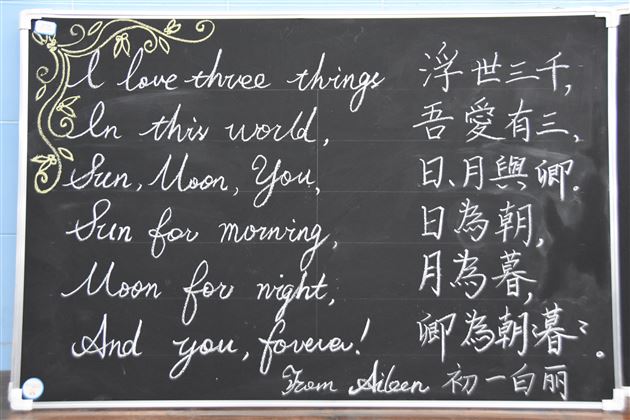 I love three things
In this world,
Sun, Moon, You,
Sun for morning,
Moon for night,
And you, forever!
浮世三千,
吾愛有三,
日、月與卿.
日為朝,
月為暮,
卿為朝〻暮〻。
From Aileen 初一白丽